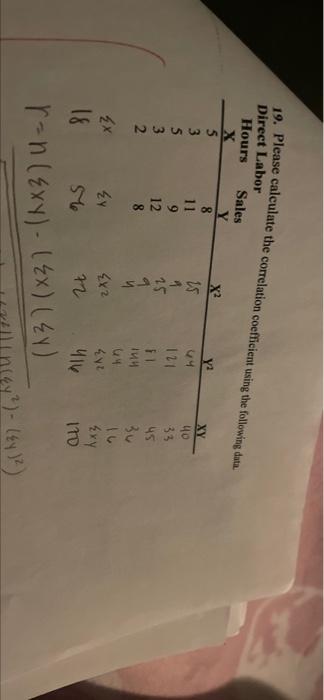 19. Please calculate the correlation coefficient using the following data.
Direct Labor
Hours Sales
X Y X² Y² XY
5 8 25 64 40
3 11 9 121 33
5 9 25 81 45
3 12 9 144 36
2 8 4 64 16
Σx Σy Σx² Σy² Σxy
18 56 72 416 170
r = n(Σxy) - (Σx)(Σy)
n(Σy²) - (Σy)²)